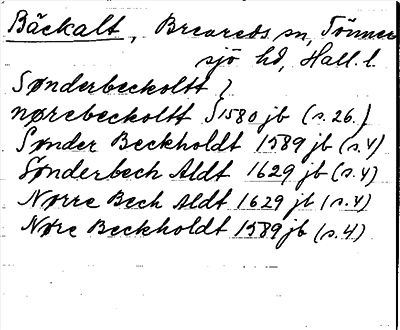 Bäckalt, Breareds sn, Tönner
sjö hd, Hall. l.
Sønderbeckoltt }
nørebeckoltt } 1580 jb (s. 26.)
Sønder Beckholdt 1589 jb (s. 4)
Sønderbech Aldt 1629 jb (s. 4)
Nørre Bech Aldt 1629 jb (s. 4)
Nøre Beckholdt 1589 jb (s. 4)